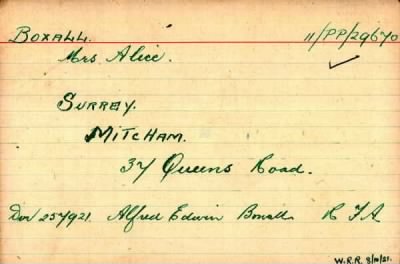 BOXALL. 11/PP/29670
Mrs Alice. ✓
SURREY.
MITCHAM.
37 Queens Road.
Dvr 257921. Alfred Edwin Boxall R F A
W.R.R. 8/10/21.